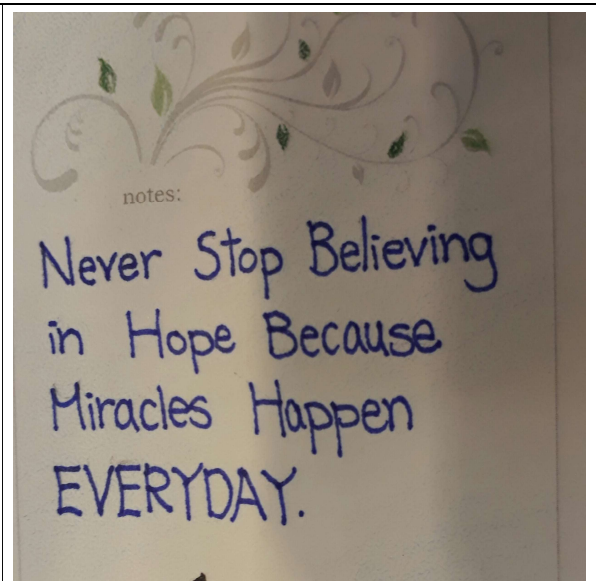 notes:
Never Stop Believing
in Hope Because
Miracles Happen
EVERYDAY.